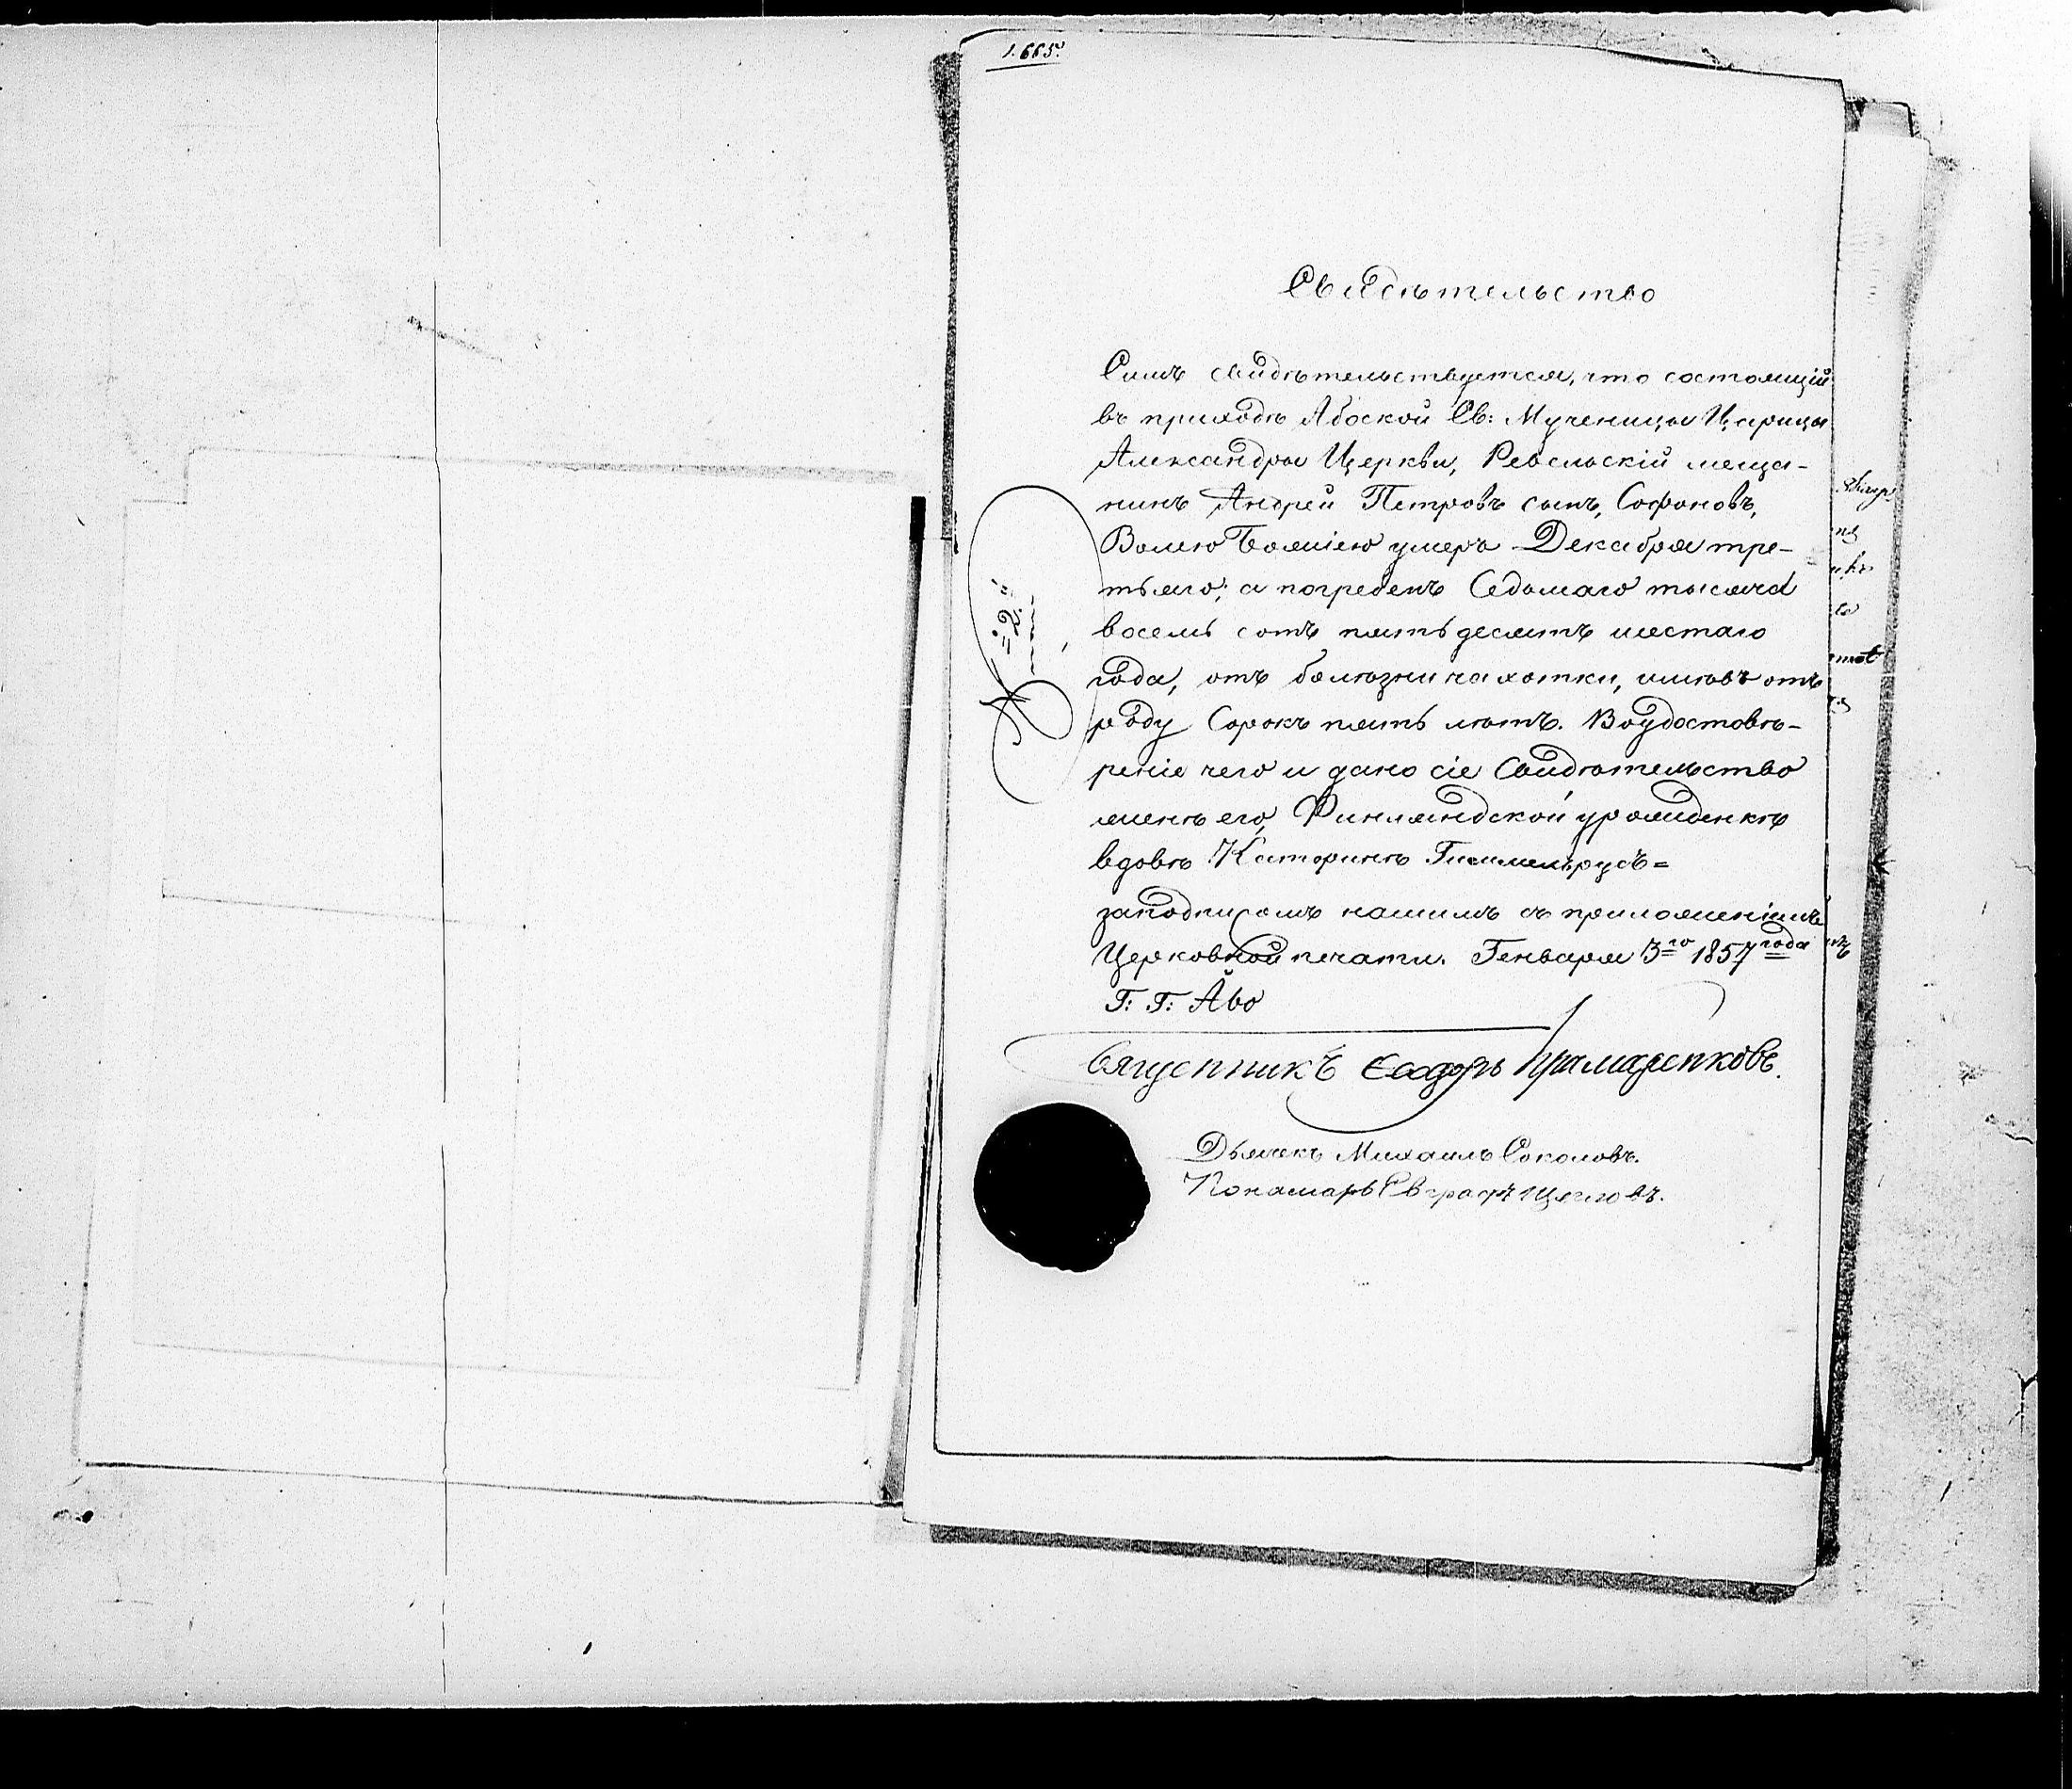 1.665.
Свидѣтельство
Симъ свидѣтельствуется, что состоящій
въ приходѣ Абоской Св: Мученицы Царицы
Александры Церкви, Ревельскій меща-
нинъ Андрей Петровъ сынъ, Софоновъ,
Волею Божіею умеръ Декабря тре-
тьяго; а погребенъ Седьмаго тысяча
восемь сотъ пятьдесятъ шестаго
года, отъ болѣзни чахотки, имѣвъ отъ
роду Сорокъ пять лѣтъ. Воудостовѣ-
реніе чего и дано сіе Свидѣтельство
женѣ его, Финляндской уроженкѣ
вдовѣ Каторинѣ
заподписомъ нашимъ съ приложеніемъ
Церковной печати. Генваря 3го 1857 года
Г: Г: Åbo
Священникъ Ѳеодоръ
Дьячекъ Михаилъ Соколовъ.
Понамарь Евграфъ Щегловъ.